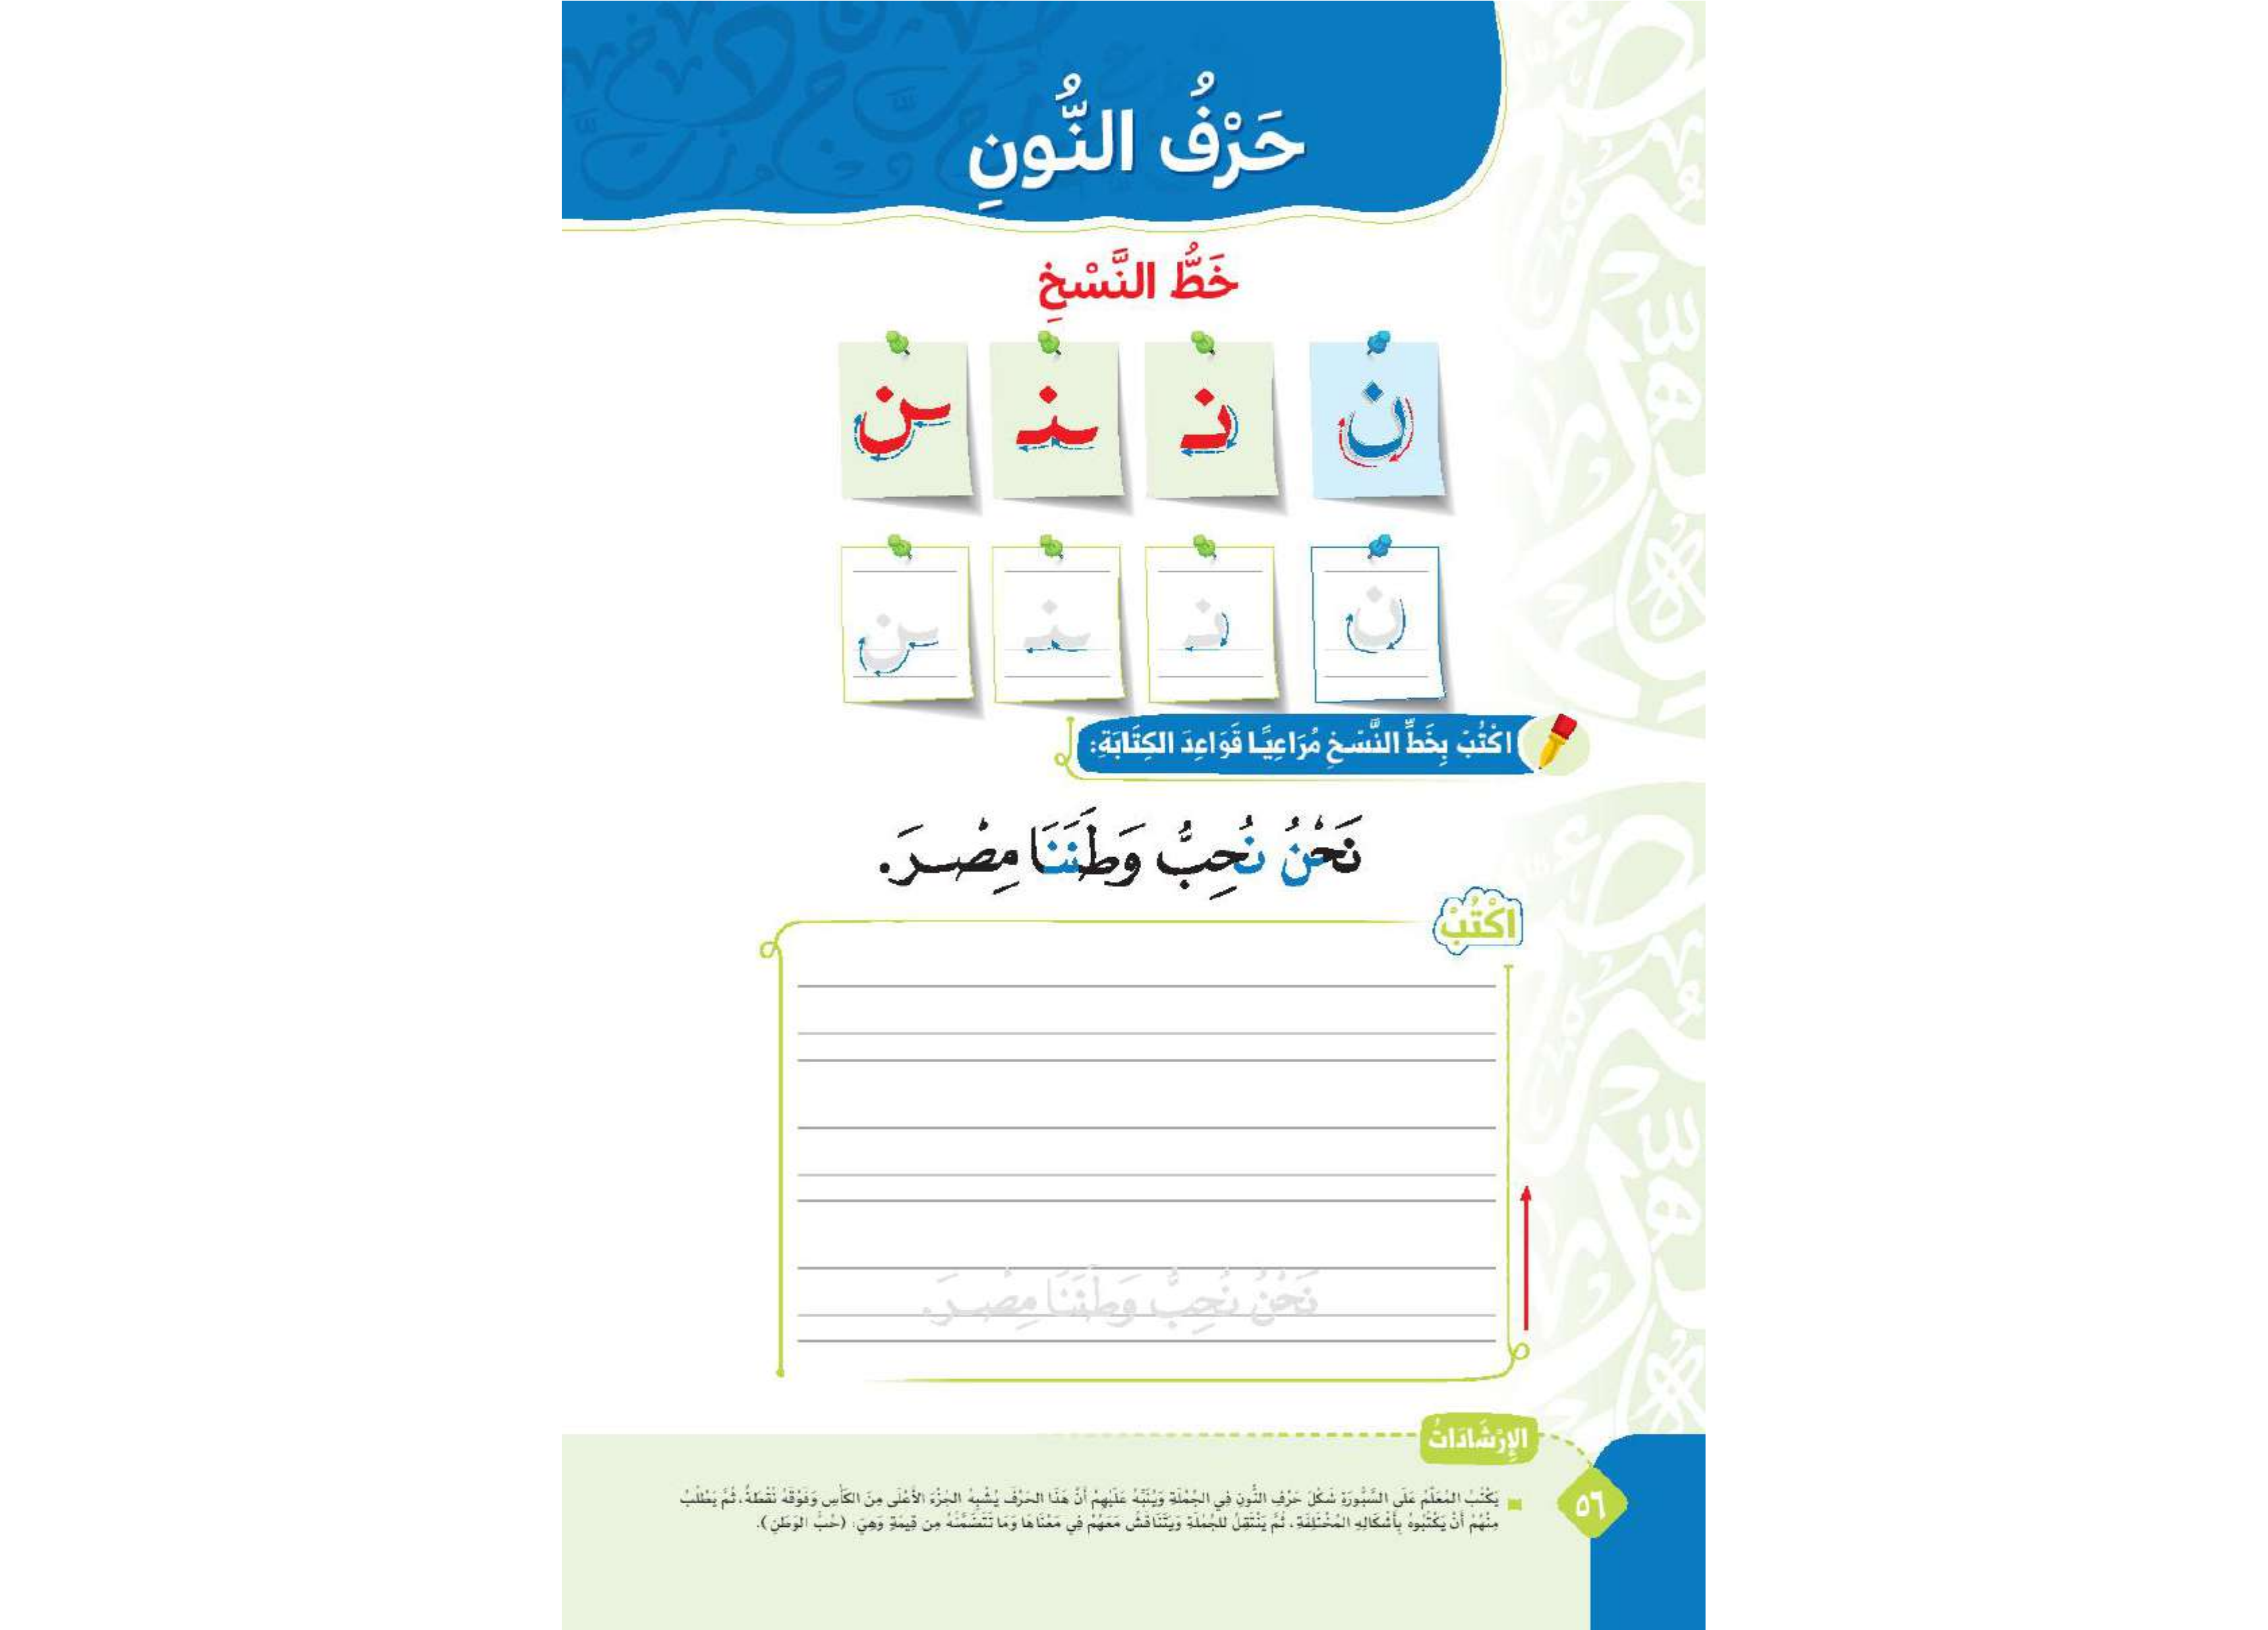 حَرْفُ النُّونِ
خَطُّ النَّسْخِ
ن نـ ـنـ ـن
ن نـ ـنـ ـن
اكْتُبْ بِخَطِّ النَّسْخِ مُرَاعِيًا قَوَاعِدَ الكِتَابَةِ:
نَحْنُ نُحِبُّ وَطَنَنَا مِصْرَ.
اكْتُبْ
نَحْنُ نُحِبُّ وَطَنَنَا مِصْرَ.
الإِرْشَادَاتُ
يَكْتُبُ المُعَلِّمُ عَلَى السَّبُّورَةِ شَكْلَ حَرْفِ النُّونِ فِي الجُمْلَةِ وَيُنَبِّهُ عَلَيْهِمْ أَنَّ هَذَا الحَرْفَ يُشْبِهُ الجُزْءَ الأَعْلَى مِنَ الكَأْسِ وَفَوْقَهُ نُقْطَةٌ، ثُمَّ يَطْلُبُ
مِنْهُمْ أَنْ يَكْتُبُوهُ بِأَشْكَالِهِ المُخْتَلِفَةِ، ثُمَّ يَنْتَقِلُ للجُمْلَةِ وَيَتَنَاقَشُ مَعَهُمْ فِي مَعْنَاهَا وَمَا تَتَضَمَّنُهُ مِن قِيمَةٍ وَهِيَ: (حُبُّ الوَطَنِ).
٥٦